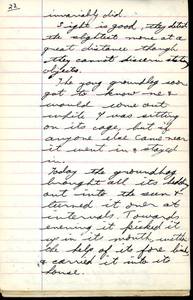 22
invariably did.
Sight is good, they detect
the slightest move at a
great distance though
they cannot discern
objects.
The young groundhog soon
got to know me &
would come out
while I was sitting
on its cage, but if
anyone else came near
it went in & stayed
in.
Today the groundhog
brought all its bedding
out into the sun &
turned it over at
intervals. Toward
evening it picked it
up in it mouth with
the help of its fore feet
& carried it into it
house.